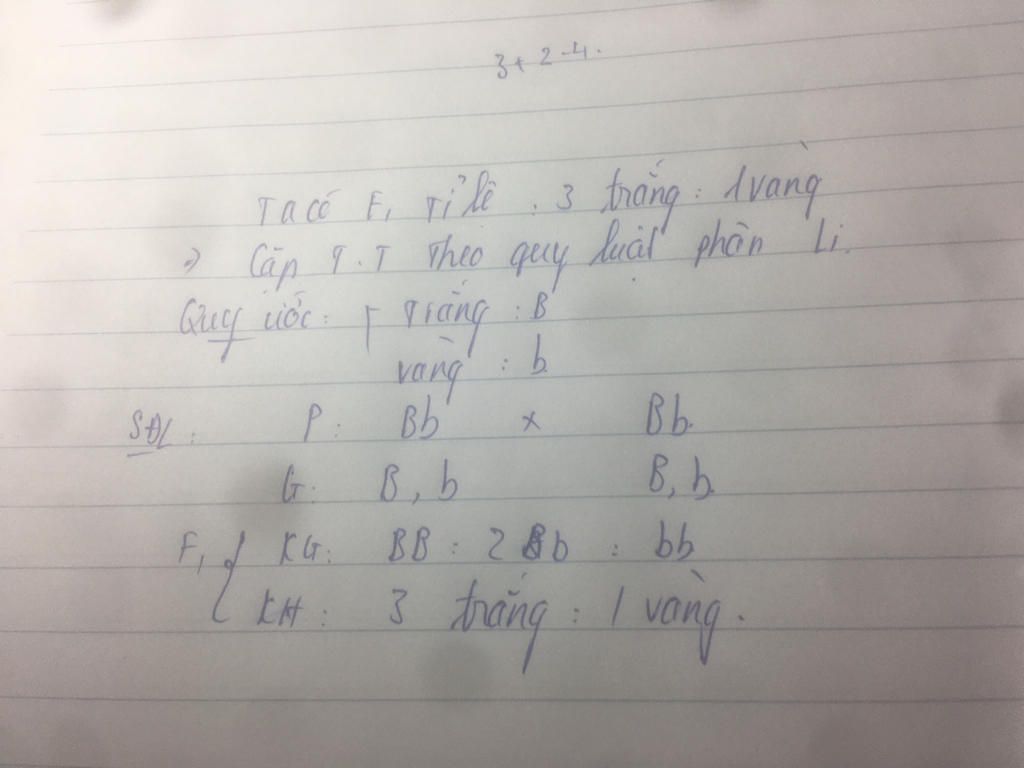 3+2-4.
Ta có F₁ Tỉ lệ : 3 trắng : 1 vàng
=> Cặp T.T Theo quy luật phân li.
Quy ước : Trắng : B
vàng : b
SĐL : P : Bb x Bb
G : B, b B, b
F₁ { KG : BB : 2 Bb : bb
KH : 3 trắng : 1 vàng.